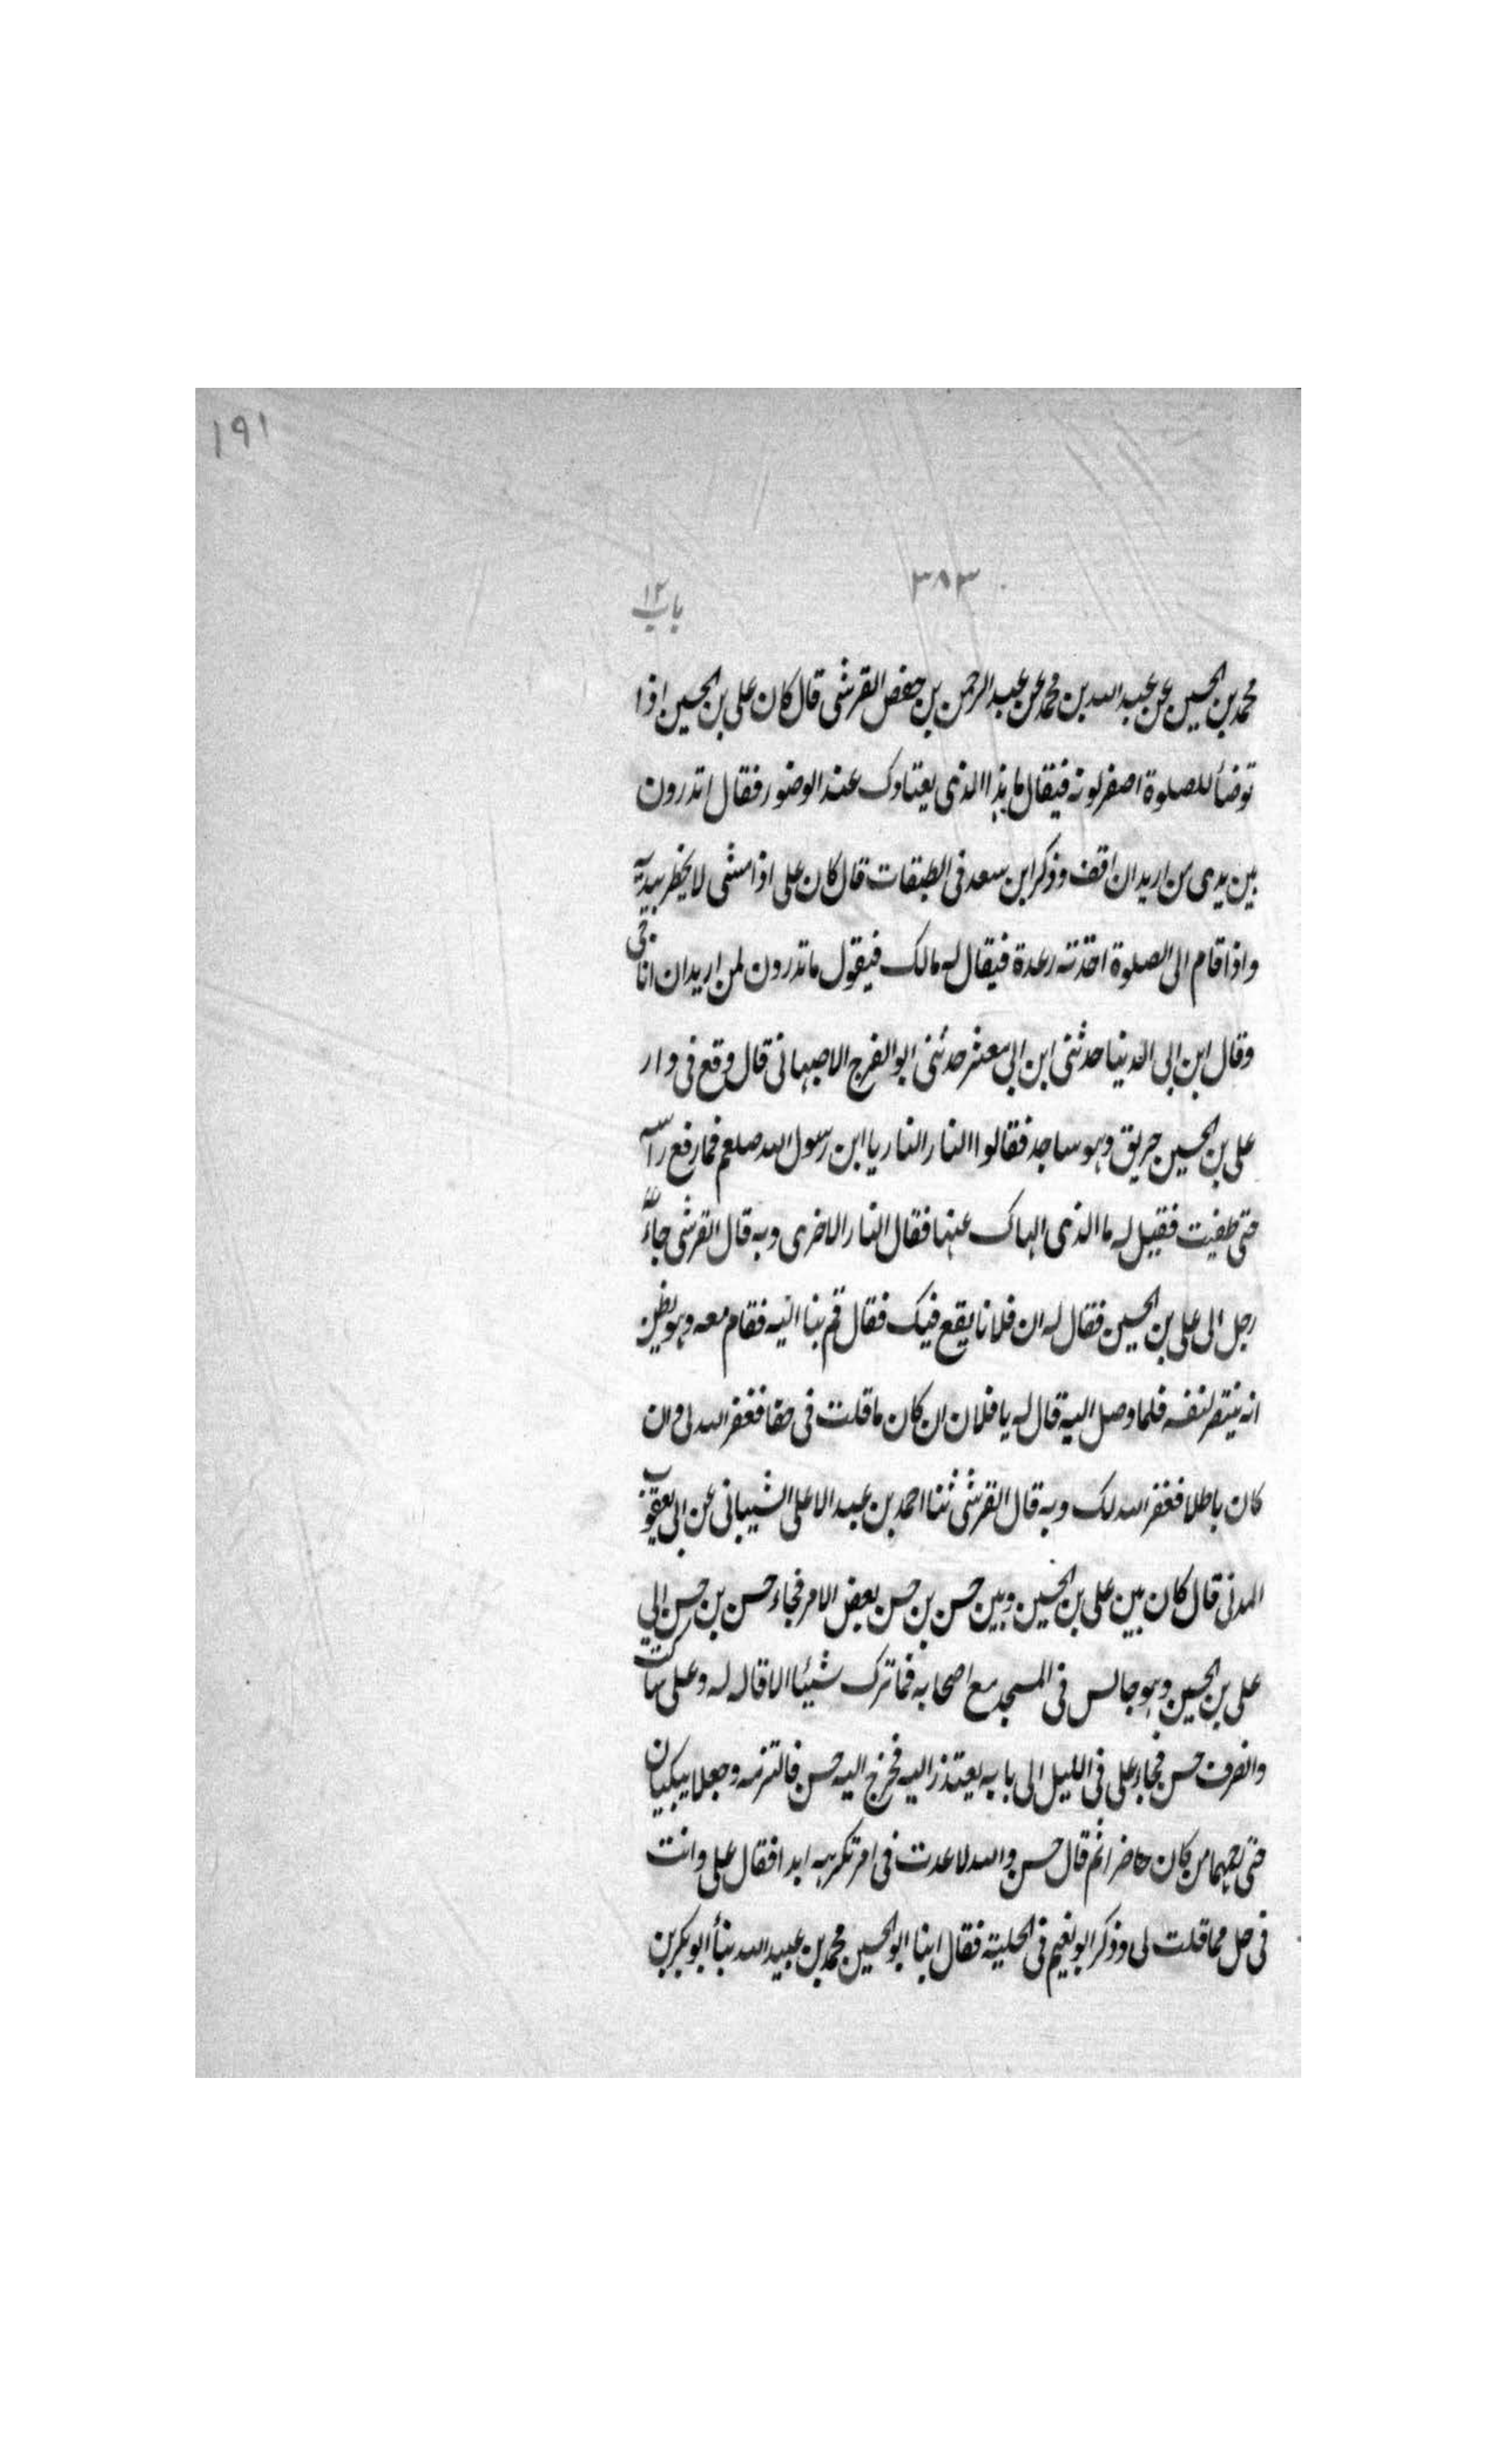 ١٩١
٣٨٣
باب ١٢
محمد بن الحسين عن عبيد الله بن محمد عن عبد الرحمن بن حفص القرشى قال كان على بن الحسين اذا
توضأ للصلوة اصفر لونه فيقال ما هذا الذى يعتادك عند الوضوء فقال اتدرون
بين يدى من اريد ان اقف وذكر ابن سعد فى الطبقات قال كان على اذا مشى لا يخطر بيديه
واذا قام الى الصلوة اخذته رعدة فيقال له مالك فيقول ما تدرون لمن اريد ان اناجى
وقال ابن ابى الدنيا حدثنى ابن ابى معشر حدثنى ابو الفرج الاصبهانى قال وقع فى دار
على بن الحسين حريق وهو ساجد فقالوا النار النار يا ابن رسول الله صلعم فما رفع راسه
حتى طفيت فقيل له ما الذى الهاك عنها فقال النار الاخرى وبه قال القرشى جاء
رجل الى على بن الحسين فقال له ان فلانا يقع فيك فقال قم بنا اليه فقام معه وهو يظن
انه ينتصر لنفسه فلما وصل اليه قال له يا فلان ان كان ما قلت فى حقا فغفر الله لى وان
كان باطلا فغفر الله لك وبه قال القرشى ثنا احمد بن عبد الاعلى الشيبانى عن ابى يعقوب
المدنى قال كان بين على بن الحسين وبين حسن بن حسن بعض الامر فجاء حسن بن حسن الى
على بن الحسين وهو جالس فى المسجد مع اصحابه فما ترك شيئا الا قاله له وعلى ساكت
وانصرف حسن فجاء على فى الليل الى بابه يعتذر اليه فخرج اليه حسن فالتزمه وجعلا يبكيان
حتى رحمهما من كان حاضرا ثم قال حسن والله لا عدت فى امر تكرهه ابدا فقال على وانت
فى حل مما قلت لى وذكر ابو نعيم فى الحلية فقال انبا ابو الحسين محمد بن عبيد الله نبأ ابو بكر بن